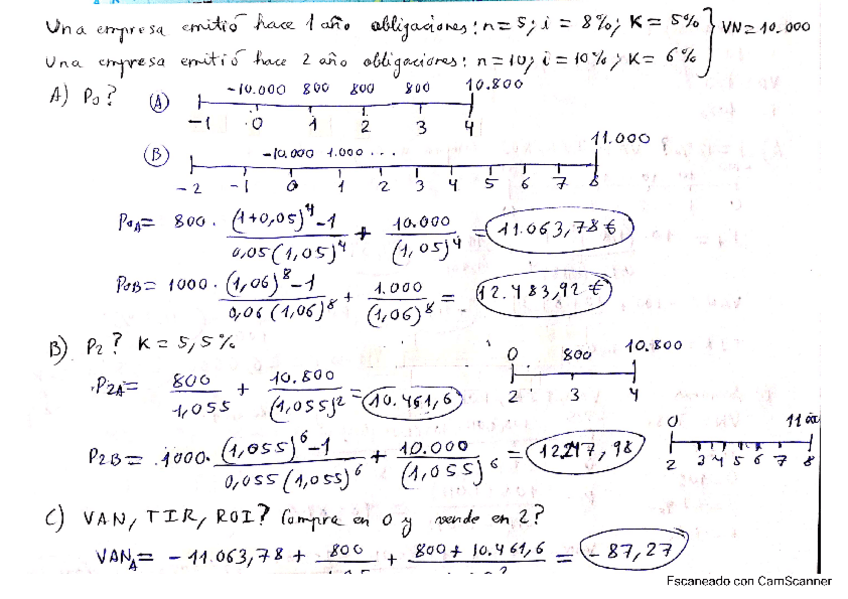 Una empresa emitió hace 1 año obligaciones: n = 5; i = 8%; K = 5%
Una empresa emitió hace 2 año obligaciones: n = 10; i = 10%; K = 6%
VN = 10.000
A) P₀?
(A) -10.000 800 800 800 10.800
-1 0 1 2 3 4
(B) -10.000 1.000 ... 11.000
-2 -1 0 1 2 3 4 5 6 7 8
P₀A = 800 · ((1+0,05)⁴-1)/(0,05(1,05)⁴) + 10.000/(1,05)⁴ = 11.063,78 €
P₀B = 1000 · ((1,06)⁸-1)/(0,06(1,06)⁸) + 1.000/(1,06)⁸ = 12.483,92 €
B) P₂? K = 5,5%
0 800 10.800
2 3 4
P₂A = 800/1,055 + 10.800/(1,055)² = 10.461,6
0
2 3 4 5 6 7 8
P₂B = 1000 · ((1,055)⁶-1)/(0,055(1,055)⁶) + 10.000/(1,055)⁶ = 12.247,98
C) VAN, TIR, ROI? Compra en 0 y vende en 2?
VAN_A = -11.063,78 + 800/ + 800 + 10.461,6/ = -87,27
Escaneado con CamScanner